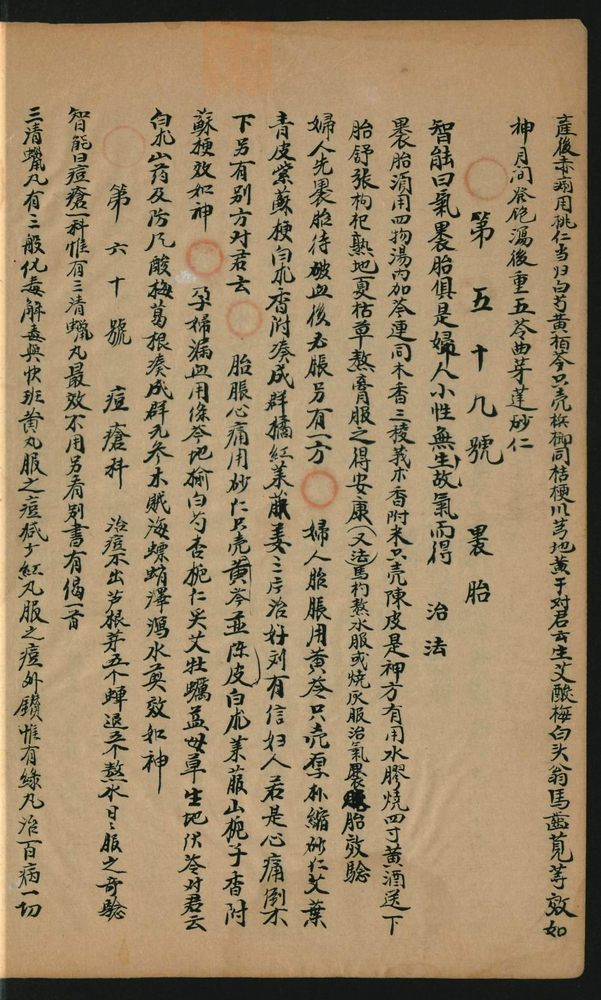 產後赤痢用桃仁当归白芍黄栢芩只壳梹榔同桔梗川芎地黄干对君云生艾酸梅白头翁馬齒莧等效如
神月间發飽瀉後重五苓曲芽蓮砂仁
第五十九號 裹胎
智能曰氣裹胎俱是婦人小性無生故氣而得 治法
裹胎湏用四物湯内加苓連同木香三稜莪朮香附米只壳陳皮是神方有用水膠燒四寸黄酒送下
胎舒張枸杞熟地夏枯草熬膏服之得安康又法馬杓熬水服或燒灰服治氣裹胎效驗
婦人先裹胎待破血後若脹另有一方 婦人胎脹用黄芩只壳厚朴縮砂仁艾葉
青皮紫蘇梗白朮香附凑成群橘紅萊菔姜三片治好刘有信妇人若是心痛倒不
下另有别方对君云 胎脹心痛用砂仁只壳黄芩並陈皮白朮萊菔山栀子香附
蘇梗效如神 孕婦漏血用條芩地榆白芍杏栀仁炙艾牡蠣益母草生地伏苓对君云
白朮山药及防风酸梅葛根凑成群元参木贼海螵蛸澤瀉水煎效如神
第六十號 痘瘡科 治痘不出芦根芽五个蝉退五个熬水日日服之奇驗
智能曰痘瘡一科惟有三清蠟丸最效不用另看别書有偈一首
三清蠟丸有三般仇毒解毒興快班黄丸服之痘减少紅丸服之痘外鑽惟有綠丸治百病一切